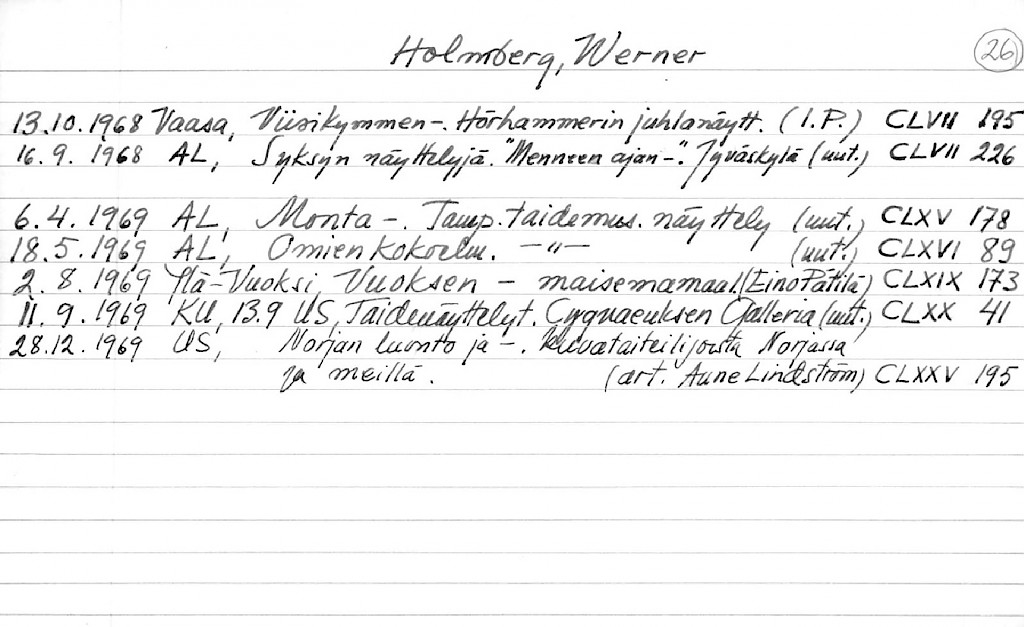 Holmberg, Werner 26
13.10.1968 Vaasa, Viisikymmen-. Hörhammerin juhlanäytt. (I.P.) CLVII 195
16.9. 1968 AL, Syksyn näyttelyjä. "Menneen ajan-". Jyväskylä (uut.) CLVII 226
6.4. 1969 AL, Monta-. Tamp. taidemus. näyttely (uut.) CLXV 178
18.5. 1969 AL, Omien kokoelm. -"- (uut.) CLXVI 89
2.8. 1969 Ylä-Vuoksi, Vuoksen - maisemamaal. (Eino Pätilä) CLXIX 173
11.9. 1969 KU, 13.9 US, Taidenäyttelyt. Cygnaeuksen Galleria (uut.) CLXX 41
28.12. 1969 US, Norjan luonto ja -. Kuvataiteilijoista Norjassa
ja meillä. (art. Aune Lindström) CLXXV 195